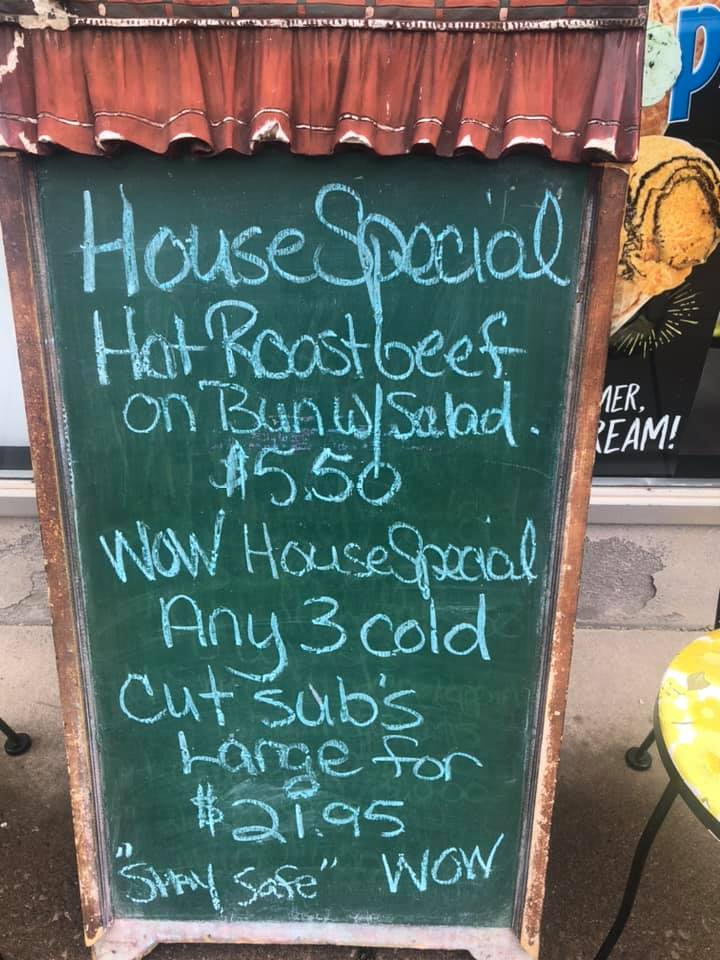 House Special
Hot Roast beef
on Bun w/ Salad.
$5.50
WOW House Special
Any 3 cold
Cut sub's
Large for
$21.95
"Stay Safe" WOW
P
MER,
REAM!